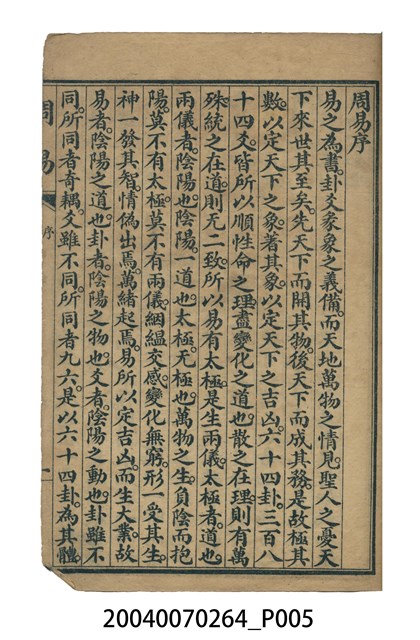 周易序
易之為書。卦爻彖象之義備。而天地萬物之情見。聖人之憂天
下來世其至矣。先天下而開其物。後天下而成其務。是故極其
數。以定天下之象。著其象。以定天下之吉凶。六十四卦。三百八
十四爻。皆所以順性命之理。盡變化之道也。散之在理。則有萬
殊。統之在道。則无二致。所以易有太極。是生兩儀。太極者。道也。
兩儀者。陰陽也。陰陽。一道也。太極。无極也。萬物之生。負陰而抱
陽。莫不有太極。莫不有兩儀。絪縕交感。變化無窮。形一受其生。
神一發其智。情偽出焉。萬緒起焉。易所以定吉凶。而生大業。故
易者。陰陽之道也。卦者。陰陽之物也。爻者。陰陽之動也。卦雖不
同。所同者奇耦。爻雖不同。所同者九六。是以六十四卦。為其體。
周易
序
一
20040070264_P005